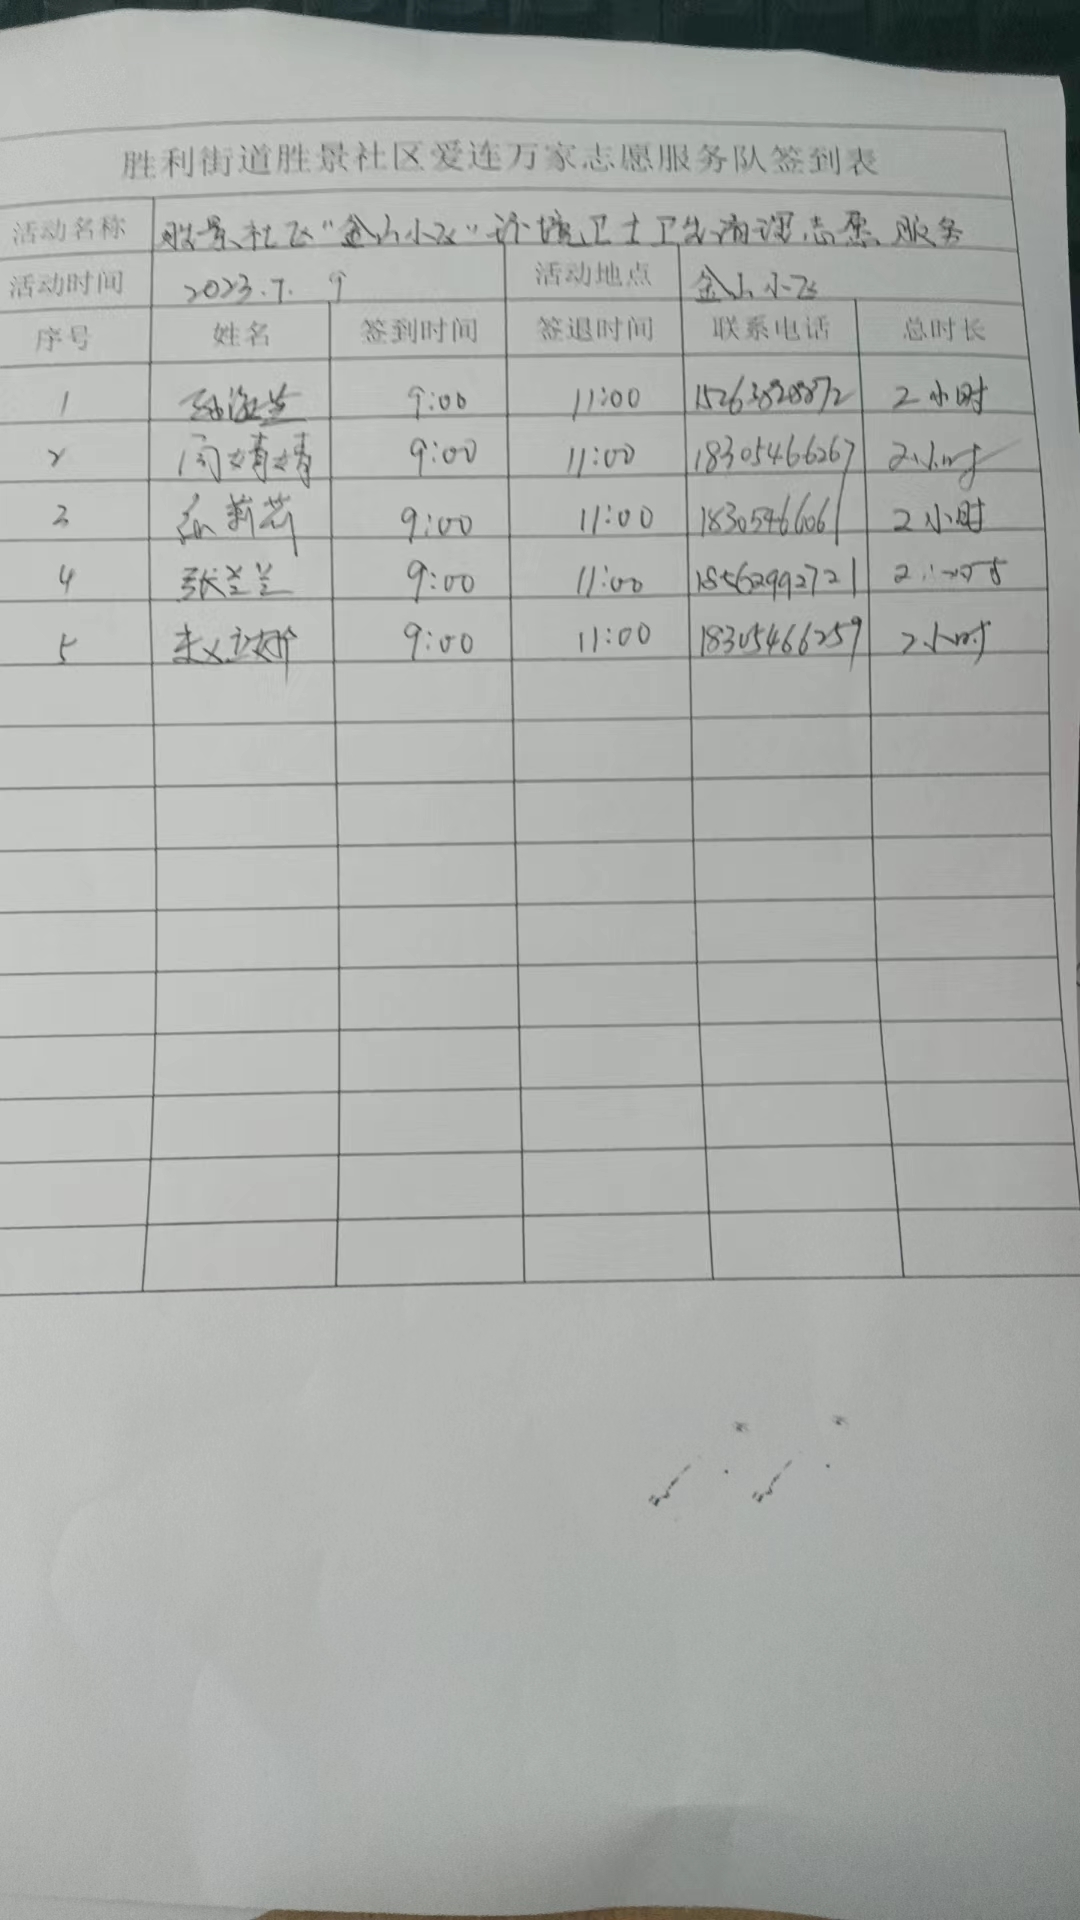 胜利街道胜景社区爱连万家志愿服务队签到表
活动名称 胜景社区"金山小区"环境卫士卫生清理志愿服务
活动时间 2023.7. 9 活动地点 金山小区
序号 姓名 签到时间 签退时间 联系电话 总时长
1 9:00 11:00 15263828872 2小时
2 闫婧婧 9:00 11:00 18305466267 2小时
3 9:00 11:00 18305466061 2小时
4 张兰兰 9:00 11:00 18562992721 2小时
5 9:00 11:00 18305466259 2小时